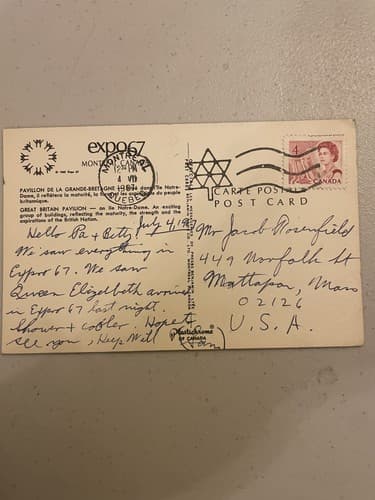 expo67
MONTRÉAL, CANADA
© 1963 Expo 67
PAVILLON DE LA GRANDE-BRETAGNE dans l'île Notre-
Dame, il reflètera la maturité, la force et les aspirations du peuple
britannique.
GREAT BRITAIN PAVILION — on Ile Notre-Dame. An exciting
group of buildings, reflecting the maturity, the strength and the
aspirations of the British Nation.
July 4, 1967
Hello Pa + Betty,
We saw everything in
Expo 67. We saw
Queen Elizabeth arrived
in Expo 67 last night.
Shower + cooler. Hope to
see you, Keep Well
MONTRÉAL
PM
4 VII
1967
QUÉBEC
4
CANADA
CARTE POSTALE
POST CARD
Mr Jacob Rosenfield
449 Norfolk St
Mattapan, Mass
02126
U.S.A.
Plastichrome®
OF CANADA